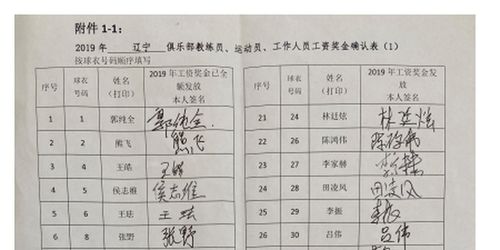 附件 1-1：
2019 年 辽宁 俱乐部教练员、运动员、工作人员工资奖金确认表（1）
按球衣号码顺序填写
序号 球衣号码 姓名（打印） 2019 年工资奖金已全额发放 本人签名 序号 球衣号码 姓名（打印） 2019 年工资奖金发放 本人签名
1 1 郭纯全 郭纯全 23 24 林廷炫 林廷炫
2 2 熊飞 熊飞 25 22 陈鸿伟
3 4 王皓 王皓 26 27 李家赫
4 5 侯志维 侯志维 24 28 田凌风 田凌风
5 6 王珐 王珐 25 29 李振 李振
6 8 张野 张野 26 30 吕伟 吕伟